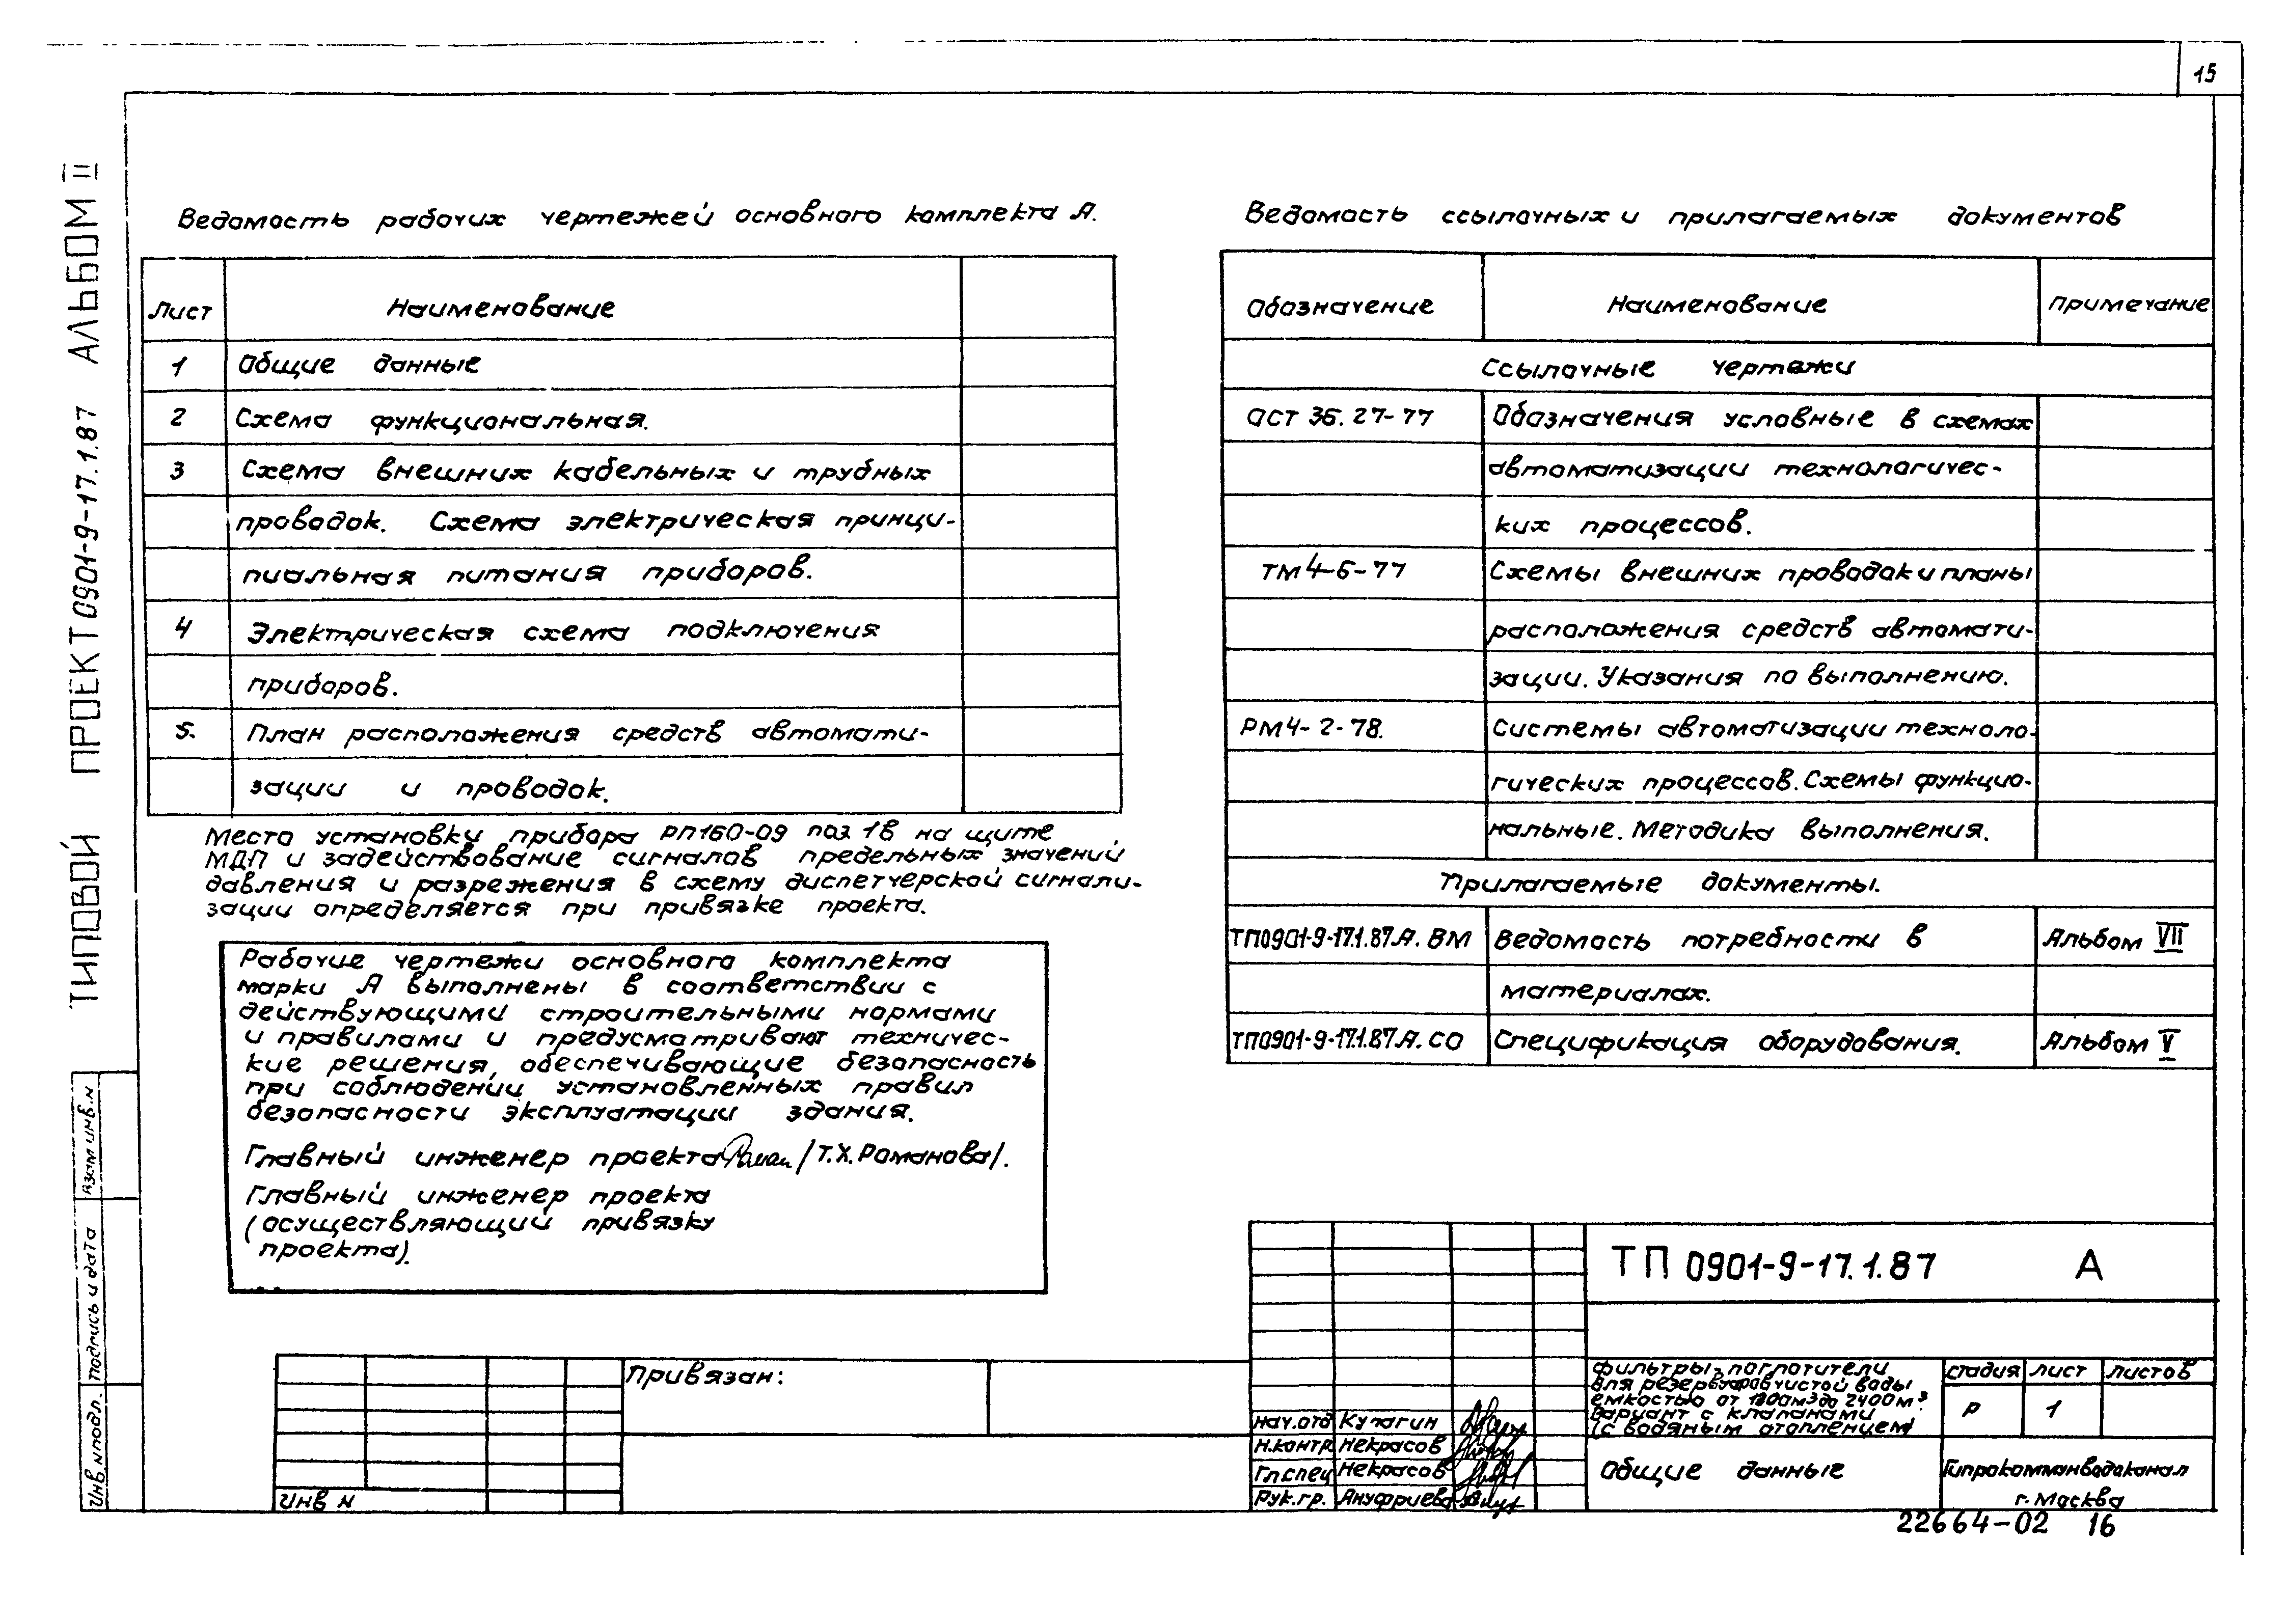 15
ТИПОВОЙ ПРОЕКТ 0901-9-17.1.87 АЛЬБОМ II
Ведомость рабочих чертежей основного комплекта А.
Лист Наименование
1 Общие данные
2 Схема функциональная.
3 Схема внешних кабельных и трубных
проводок. Схема электрическая принци-
пиальная питания приборов.
4 Электрическая схема подключения
приборов.
5. План расположения средств автомати-
зации и проводок.
Место установку прибора РП160-09 поз 1в на щите
МДП и задействование сигналов предельных значений
давления и разрежения в схему диспетчерской сигнали-
зации определяется при привязке проекта.
Рабочие чертежи основного комплекта
марки А выполнены в соответствии с
действующими строительными нормами
и правилами и предусматривают техничес-
кие решения, обеспечивающие безопасность
при соблюдении установленных правил
безопасности эксплуатации здания.
Главный инженер проекта /Т.Х.Романова/.
Главный инженер проекта
(осуществляющий привязку
проекта).
Ведомость ссылочных и прилагаемых документов
Обозначение Наименование Примечание
Ссылочные чертежи
ОСТ 36.27-77 Обозначения условные в схемах
автоматизации технологичес-
ких процессов.
ТМ4-6-77 Схемы внешних проводок и планы
расположения средств автомати-
зации. Указания по выполнению.
РМ4-2-78. Системы автоматизации техноло-
гических процессов. Схемы функцио-
нальные. Методика выполнения.
Прилагаемые документы.
ТП0901-9-17.1.87.А.ВМ Ведомость потребности в Альбом VII
материалах.
ТП0901-9-17.1.87.А.СО Спецификация оборудования. Альбом V
Взам инв.н
Подпись и дата
Инв.нподл.
Привязан:
Инв н
ТП 0901-9-17.1.87 А
Фильтры-поглотители
для резервуаров чистой воды
емкостью от м³ до 2400м³
Вариант с клапанами
(с водяным отоплением)
стадия лист листов
Р 1
нач.отд Кулагин
Н.контр Некрасов
Гл.спец Некрасов
Рук.гр. Ануфриева
Общие данные
Гипрокоммунводоканал
г. Москва
22664-02 16